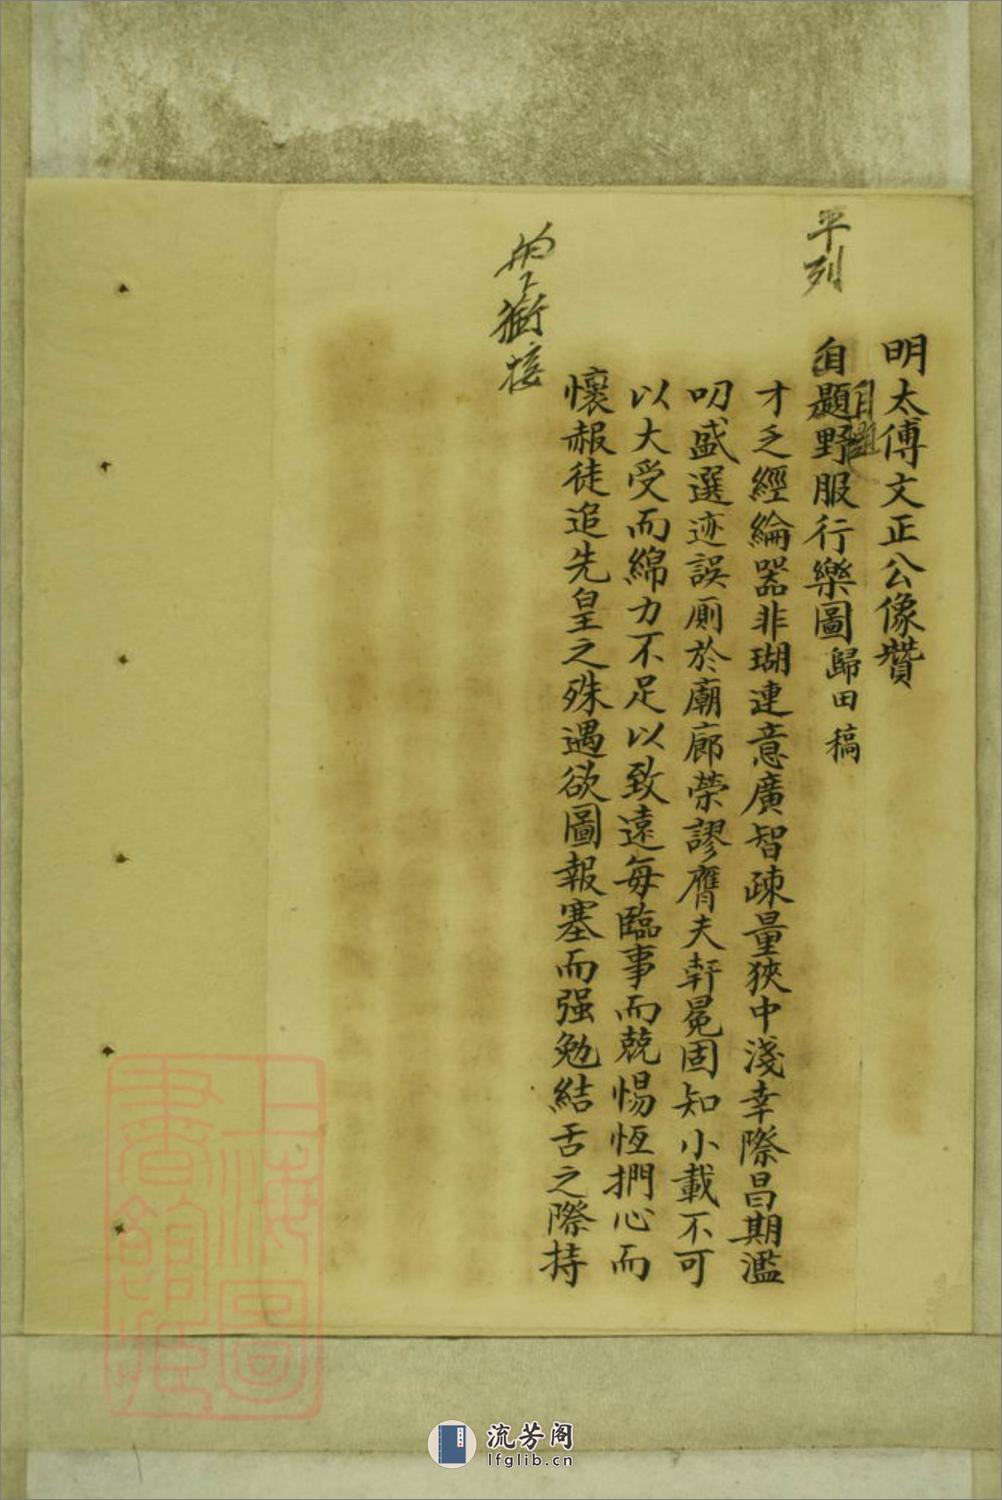 平列
明太傅文正公像贊
自題野服行樂圖歸田稿
自題
才乏經綸器非瑚連意廣智疎量狹中淺幸際昌期濫
叨盛選迹誤厠於廟廊榮謬膺夫軒冕固知小載不可
以大受而綿力不足以致遠每臨事而兢惕恆捫心而
懷赧徒追先皇之殊遇欲圖報塞而强勉結舌之際持
銜接
上海圖書館藏
流芳阁
lfglib.cn